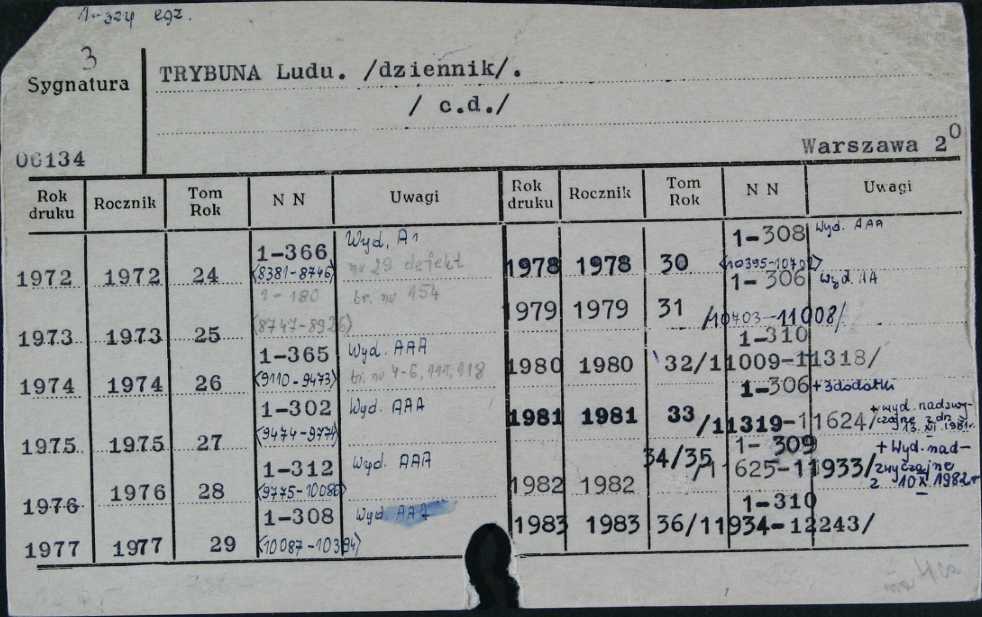 1-324 egz.
3
Sygnatura
TRYBUNA Ludu. /dziennik/.
/ c.d./
06134
Warszawa 2⁰
Rok druku Rocznik Tom Rok N N Uwagi Rok druku Rocznik Tom Rok N N Uwagi
1972 1972 24 1-366 (8381-8746) Wyd. A1 nr 29 defekt
1973 1973 25 1-180 (8747-8926) br. nr 154
1974 1974 26 1-365 (9110-9473) Wyd. AAA br. nr 4-6, 117, 118
1975 1975 27 1-302 (9474-9774) Wyd. AAA
1976 1976 28 1-312 (9775-10086) Wyd. AAA
1977 1977 29 1-308 (10087-10394) Wyd
1978 1978 30 1-308 Wyd. AAA
1979 1979 31 1-306 /10703-11008/ Wyd. AA
1980 1980 32 1-310 /11009-11318/
1981 1981 33 1-306 /11319-11624/ +3dodatki + wyd. nadzwyczajne z dn. 13.XII.1981r.
1982 1982 34/35 1-309 /11625-11933/ + Wyd. nadzwyczajne z 10 X 1982r
1983 1983 36 1-310 /11934-12243/